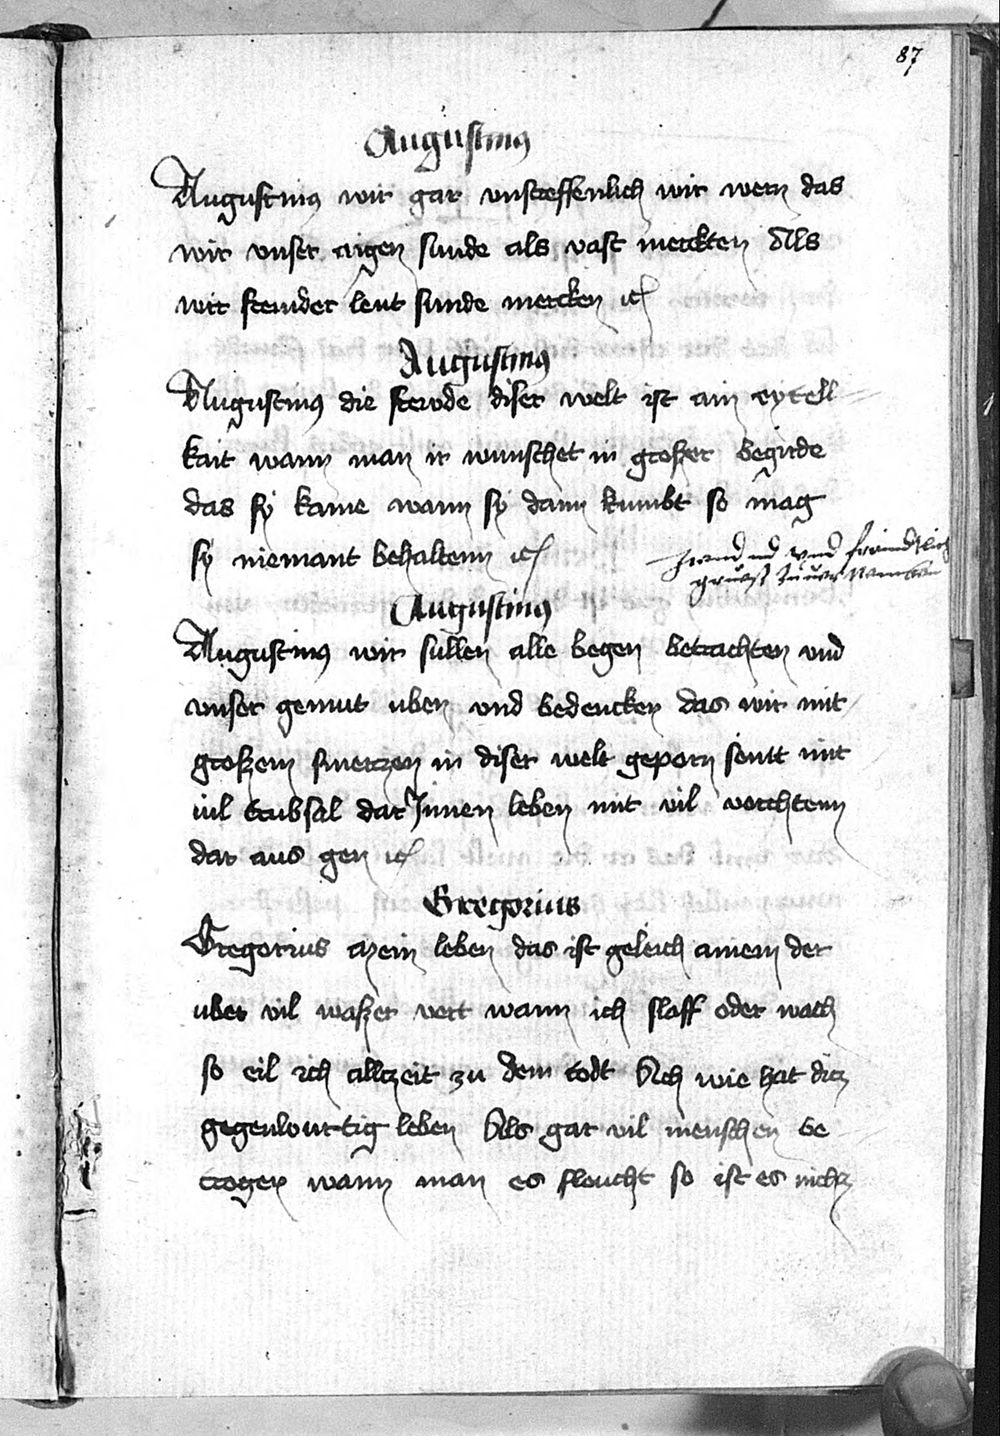 87
Augustinus
Augustinus wir gar vnstreffenlich wir wern das
wir vnser aigen sunde als vast merckten Als
wir fremder leut sunde mercken ec
Augustinus
Augustinus die frewde diser welt ist ain eytell
kait wann man ir wunschet in großer begirde
das sy kame wann sy dann kumbt so mag
sy niemant behaltenn ec
vnd fraindtlich
gruost zuuor
Augustinus
Augustinus wir sullen alle begen betrachten vnd
vnser gemut uben vnd bedencken das wir mit
großem smertzen in diser welt geporn seint mit
uil trubsal dar Jnnen leben mit vil vorchtenn
dar aus gen ec
Gregorius
Gregorius mein leben das ist geleich ainem der
uber vil waßer vert wann ich slaff oder wach
so eil ich alltzeit zu dem todt Ach wie hat ditz
gegenwurtig leben Als gar vil menschen be
trogen wann man es fleucht so ist es nicht